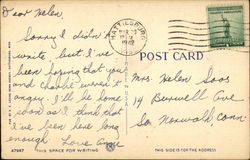 Dear Helen,
Sorry I didn't
write, but I've
been hoping that you
and Charlie weren't
angry. I'll be home
soon as I think that
I've been here long
enough. Love
HATTIESBURG
1942
POST CARD
Mrs. Helen Soos
14 Burwell Ave
So Norwalk, Conn
47967
THIS SPACE FOR WRITING
THIS SIDE IS FOR THE ADDRESS